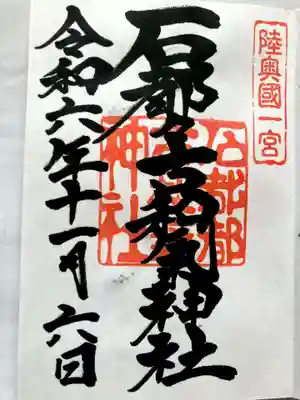 陸奥國一宮
石都々古和氣神社
石都都
古和氣
神社
令和六年十一月六日